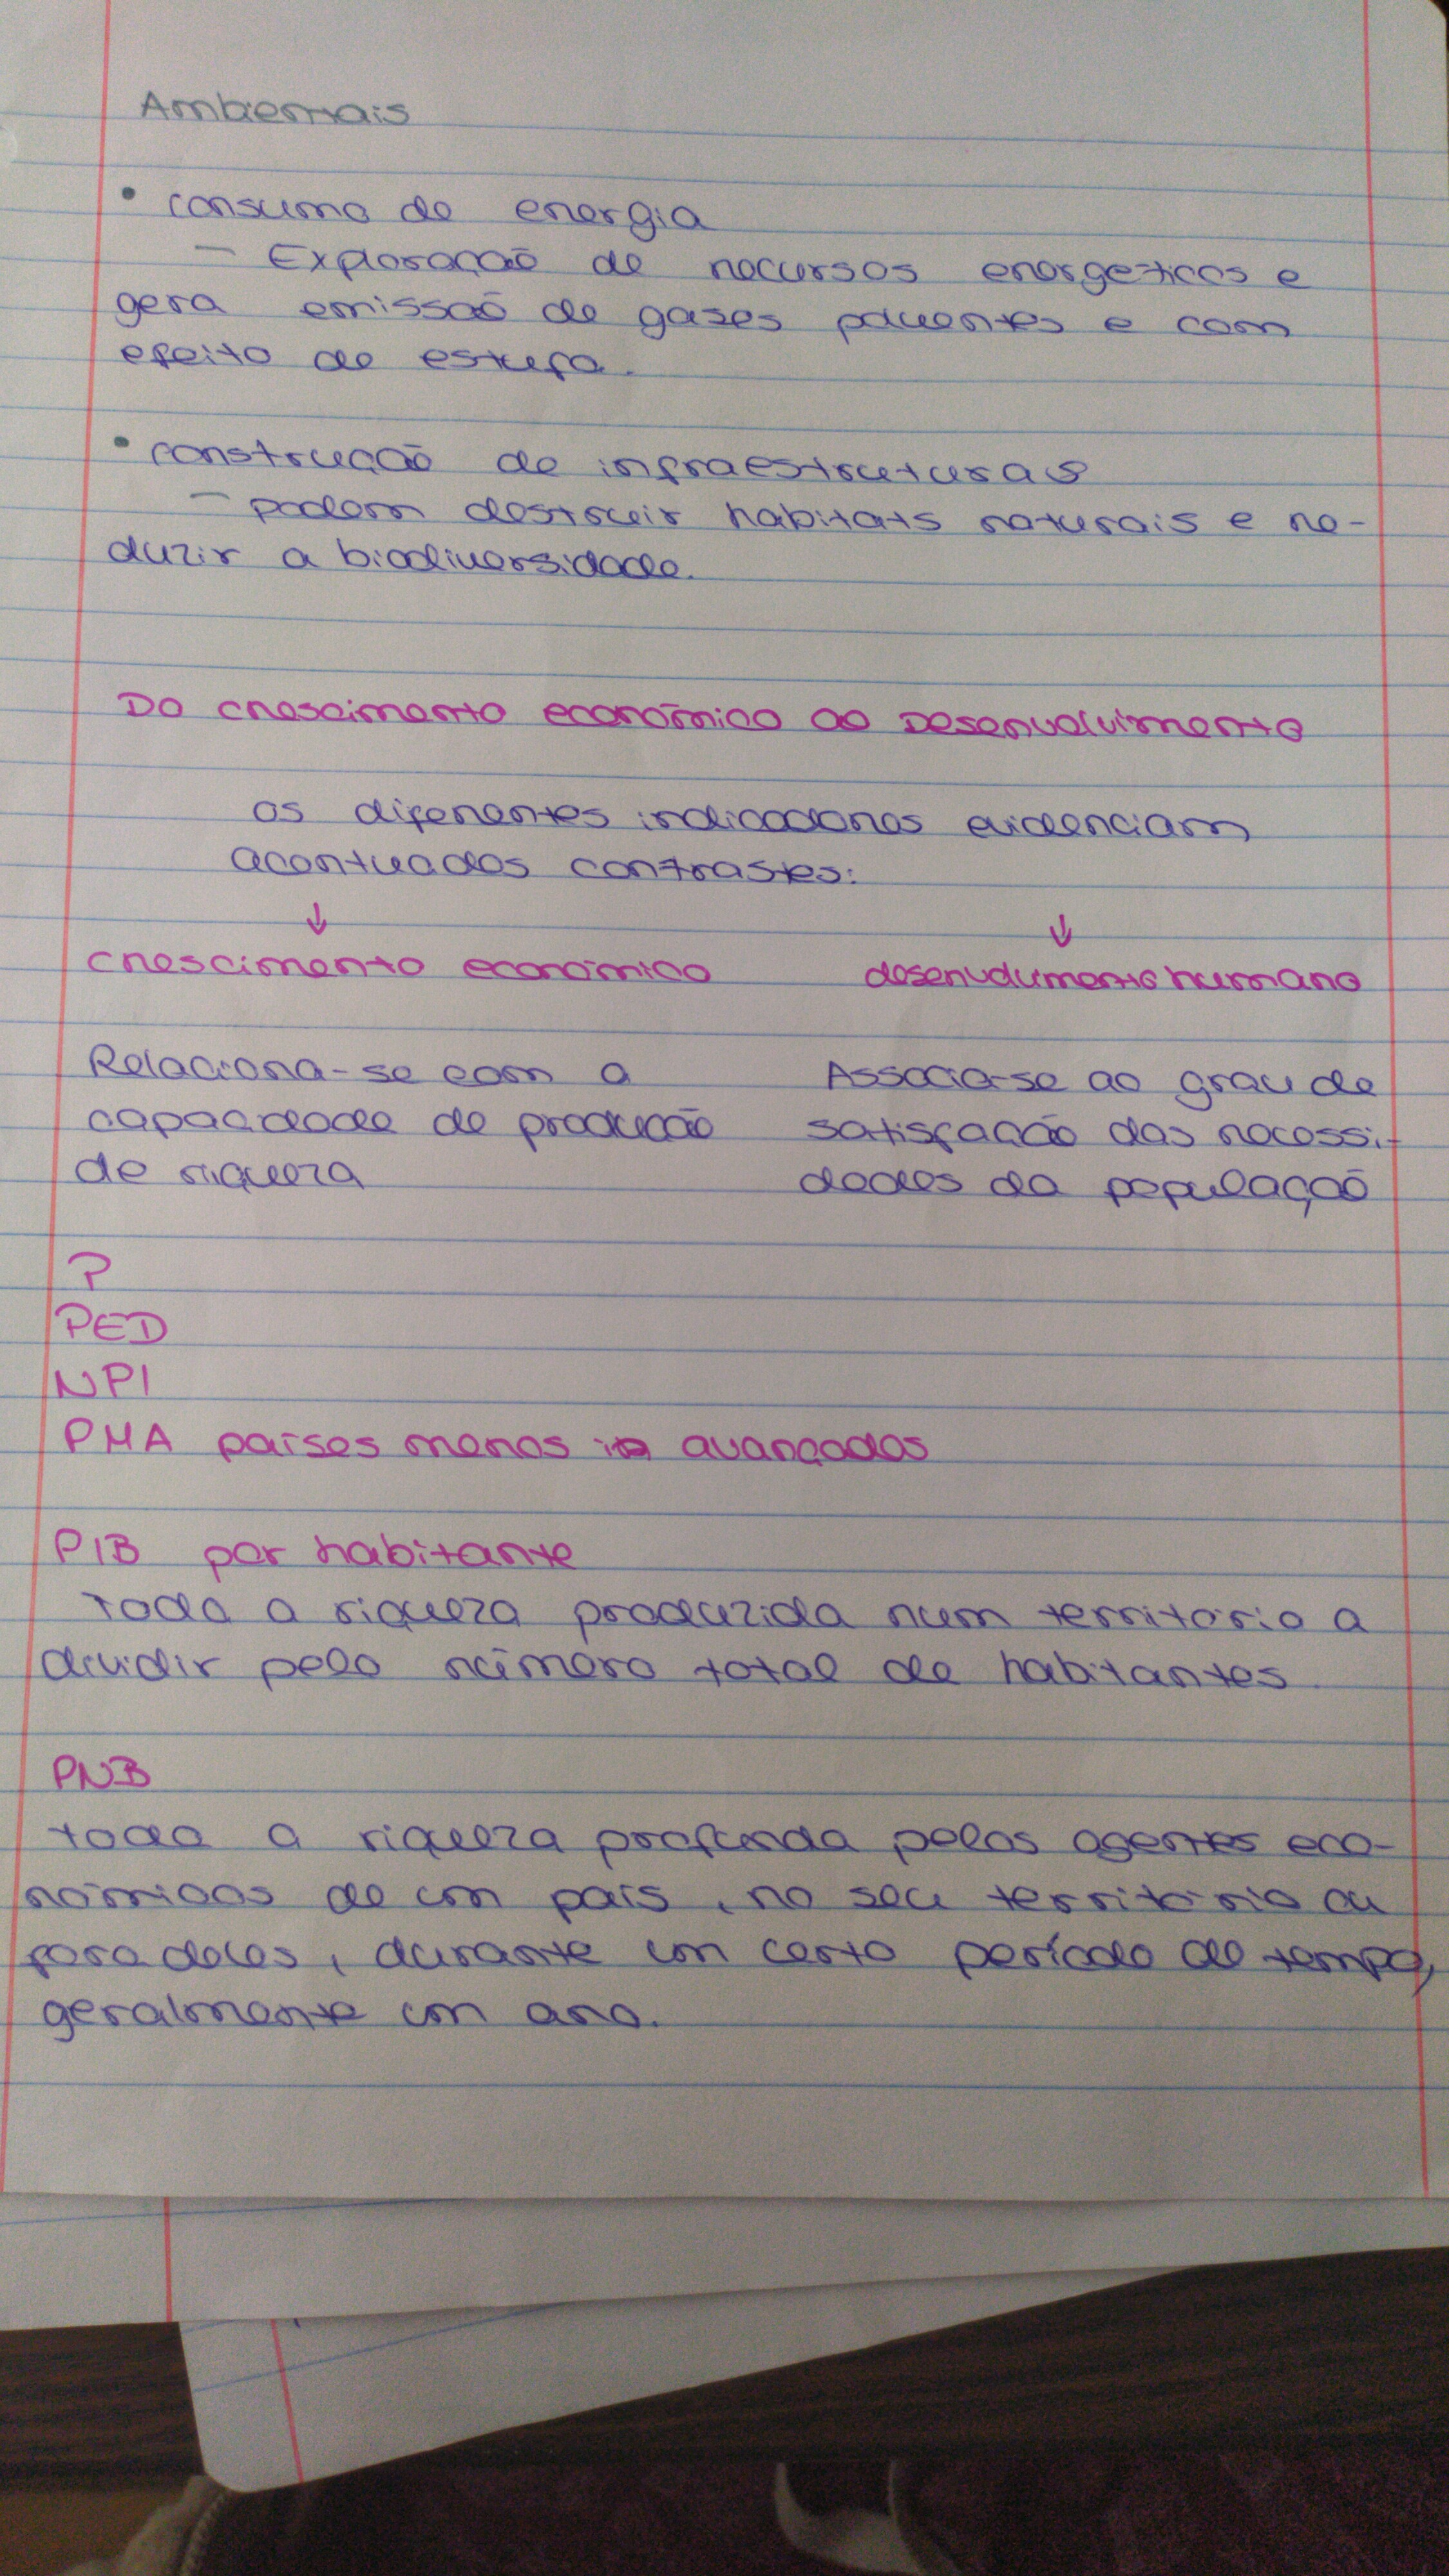 Ambientais
• consumo de energia
- Exploração de recursos energéticos e
gera emissão de gases poluentes e com
efeito de estufa.
• construção de infraestruturas
- podem destruir habitats naturais e re-
duzir a biodiversidade.
Do crescimento económico ao Desenvolvimento
os diferentes indicadores evidenciam
acentuados contrastes:
↓ ↓
crescimento económico desenvolvimento humano
Relaciona-se com a Associa-se ao grau de
capacidade de produção satisfação das necessi-
de riqueza dades da população
?
PED
NPI
PMA países menos avançados
PIB por habitante
toda a riqueza produzida num território a
dividir pelo número total de habitantes.
PNB
toda a riqueza pelos agentes eco-
nómicos de um país, no seu território ou
fora deles, durante um certo período de tempo,
geralmente um ano.